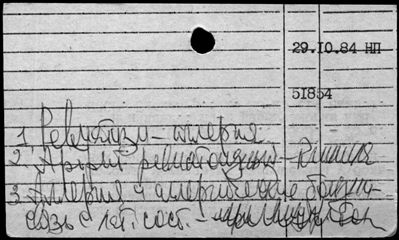 29.10.84 НП
51854
1. Ревматизм - аллергия
2. Артрит ревматоидный - клиника
3. Аллергия и аллергические болезни -
связь с пат. сост. - при